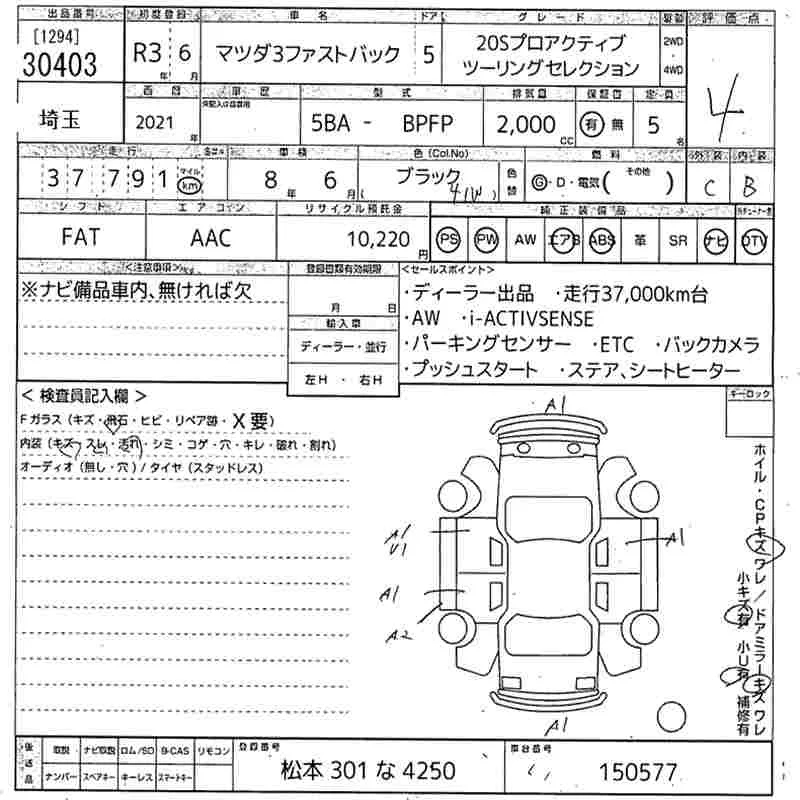 出品番号 初度登録 車名 ドア グレード 駆動 評価点
[1294]
30403
R3 年 6 月
マツダ3ファストバック
5
20Sプロアクティブ
ツーリングセレクション
2WD
・
4WD
4
西暦 車歴 型式 排気量 保証書 定員
埼玉
2021 年
5BA - BPFP
2,000 CC
有 無
5 名
走行 車検 色(Col.No) 燃料 外装 内装
37791
マイル
km
8 年 6 月
ブラック
( 41W )
色替
G・D・電気( その他 )
C
B
シフト エアコン リサイクル預託金 純正装備品
FAT
AAC
10,220 円
PS PW AW エアB ABS 革 SR ナビ DTV
<注意事項> 登録書類有効期限 <セールスポイント>
※ナビ備品車内、無ければ欠
月 日
輸入車
ディーラー・並行
左H ・ 右H
・ディーラー出品 ・走行37,000km台
・AW ・i-ACTIVSENSE
・パーキングセンサー ・ETC ・バックカメラ
・プッシュスタート ・ステア、シートヒーター
<検査員記入欄>
Fガラス(キズ・飛石・ヒビ・リペア跡・X要)
内装(キズ・スレ・汚れ・シミ・コゲ・穴・キレ・破れ・割れ)
オーディオ(無し・穴)/タイヤ(スタッドレス)
キーロック
A1
A1
U1
A1
A1
A2
A1
ホイル・CPキズワレ/ドアミラーキズワレ
小キズ有 小U有 補修有
後送品
取説 ナビ取説 ロム/SD B-CAS リモコン
ナンバー スペアキー キーレス スマートキー
登録番号
松本 301 な 4250
車台番号
150577